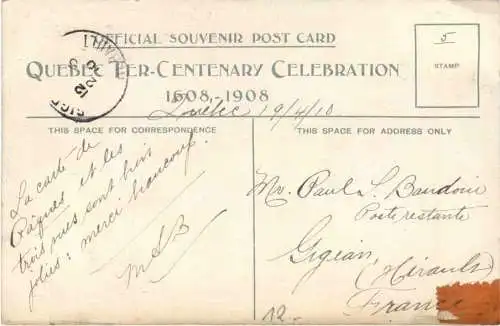 OFFICIAL SOUVENIR POST CARD
QUEBEC TER-CENTENARY CELEBRATION
1608-1908
5
STAMP
Québec 19/4/10
THIS SPACE FOR CORRESPONDENCE
THIS SPACE FOR ADDRESS ONLY
La carte de
Pâques et les
trois vues sont bien
jolies: merci beaucoup.
Mr. Paul L. Baudouin
Poste restante
Gigean
(Hérault)
France
12.-